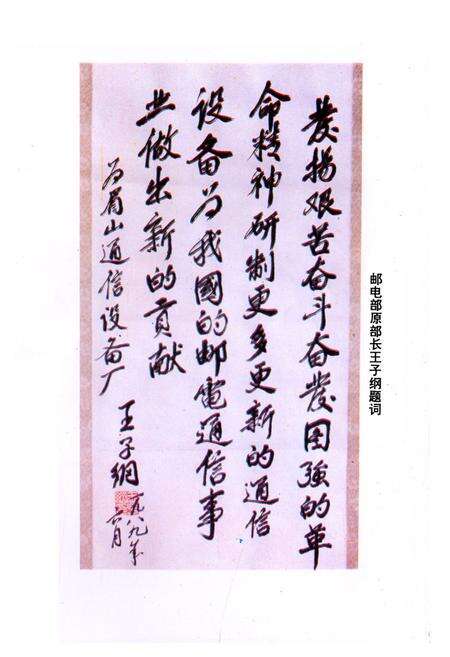 邮电部原部长王子纲题词
发扬艰苦奋斗奋发图強的革
命精神研制更多更新的通信
设备为我國的邮電通信事
业做出新的贡献
为眉山通信设备厂
王子纲
一九八九年
六月